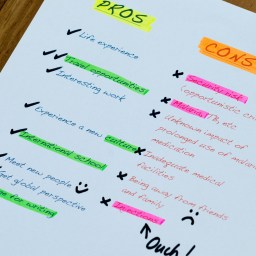 PROS
Life experience
Travel opportunities
Interesting work
Experience a new culture
International School
Meet new people
Get global perspective
Time for writing
CONS
Security risk
(opportunistic
Malaria, TB, etc
Unknown impact of
prolonged use of
medication
Inadequate medical
facilities
Being away from friends
and family
Injections!
Ouch!